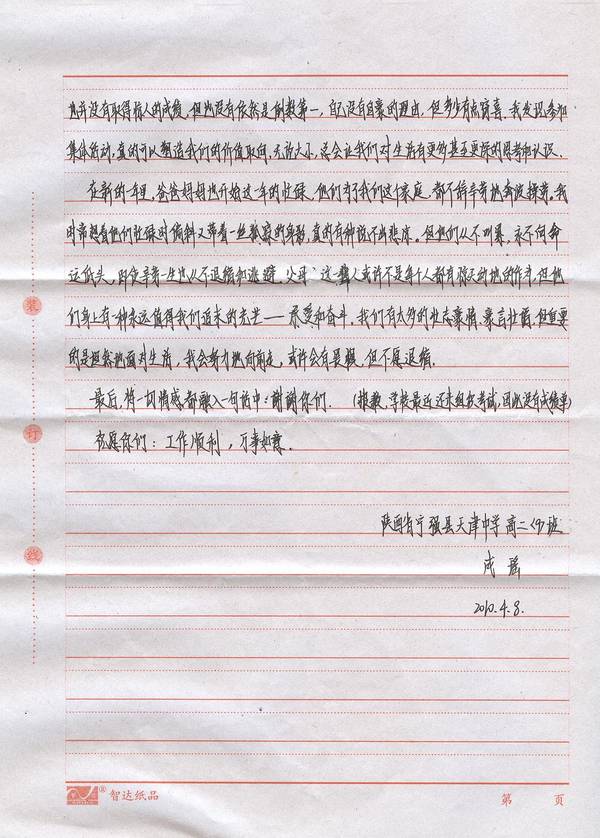 然并没有取得惊人的成绩，但也没有依然是倒数第一，自己没有自豪的理由，但多少有点惊喜。我发现参加
集体活动，真的可以塑造我们的价值取向，无论大小，总会让我们对生活有更多甚至更深的思考和认识。
在新的一年里，爸爸妈妈也开始这一年的忙碌，他们为了我们这个家庭，都不辞辛劳地奔波操劳。我
时常想着他们忙碌时俯斜又带着一丝的身影，真的有种说不出悲凉。但他们从不叫累，永不向命
运低头，即使辛劳一生也从不退缩和逃避。父母，这一人或许不是每个人都有惊天动地的作为，但他
们身上有一种永远值得我们追求的光芒——承受和奋斗。我们有太多的壮志豪情、豪言壮语，但重要
的是坦然地面对生活，我会努力地向前走，或许会有畏惧，但不愿退缩。
最后，将一切情感都融入一句话中：谢谢你们。（抱歉，学校最近还未组织考试，因此没有成绩单）
祝愿你们：工作顺利，万事如意。
陕西省宁强县天津中学高二〈9〉班
成瑶
2010.4.8.
装
订
线
® 智达纸品
第 页